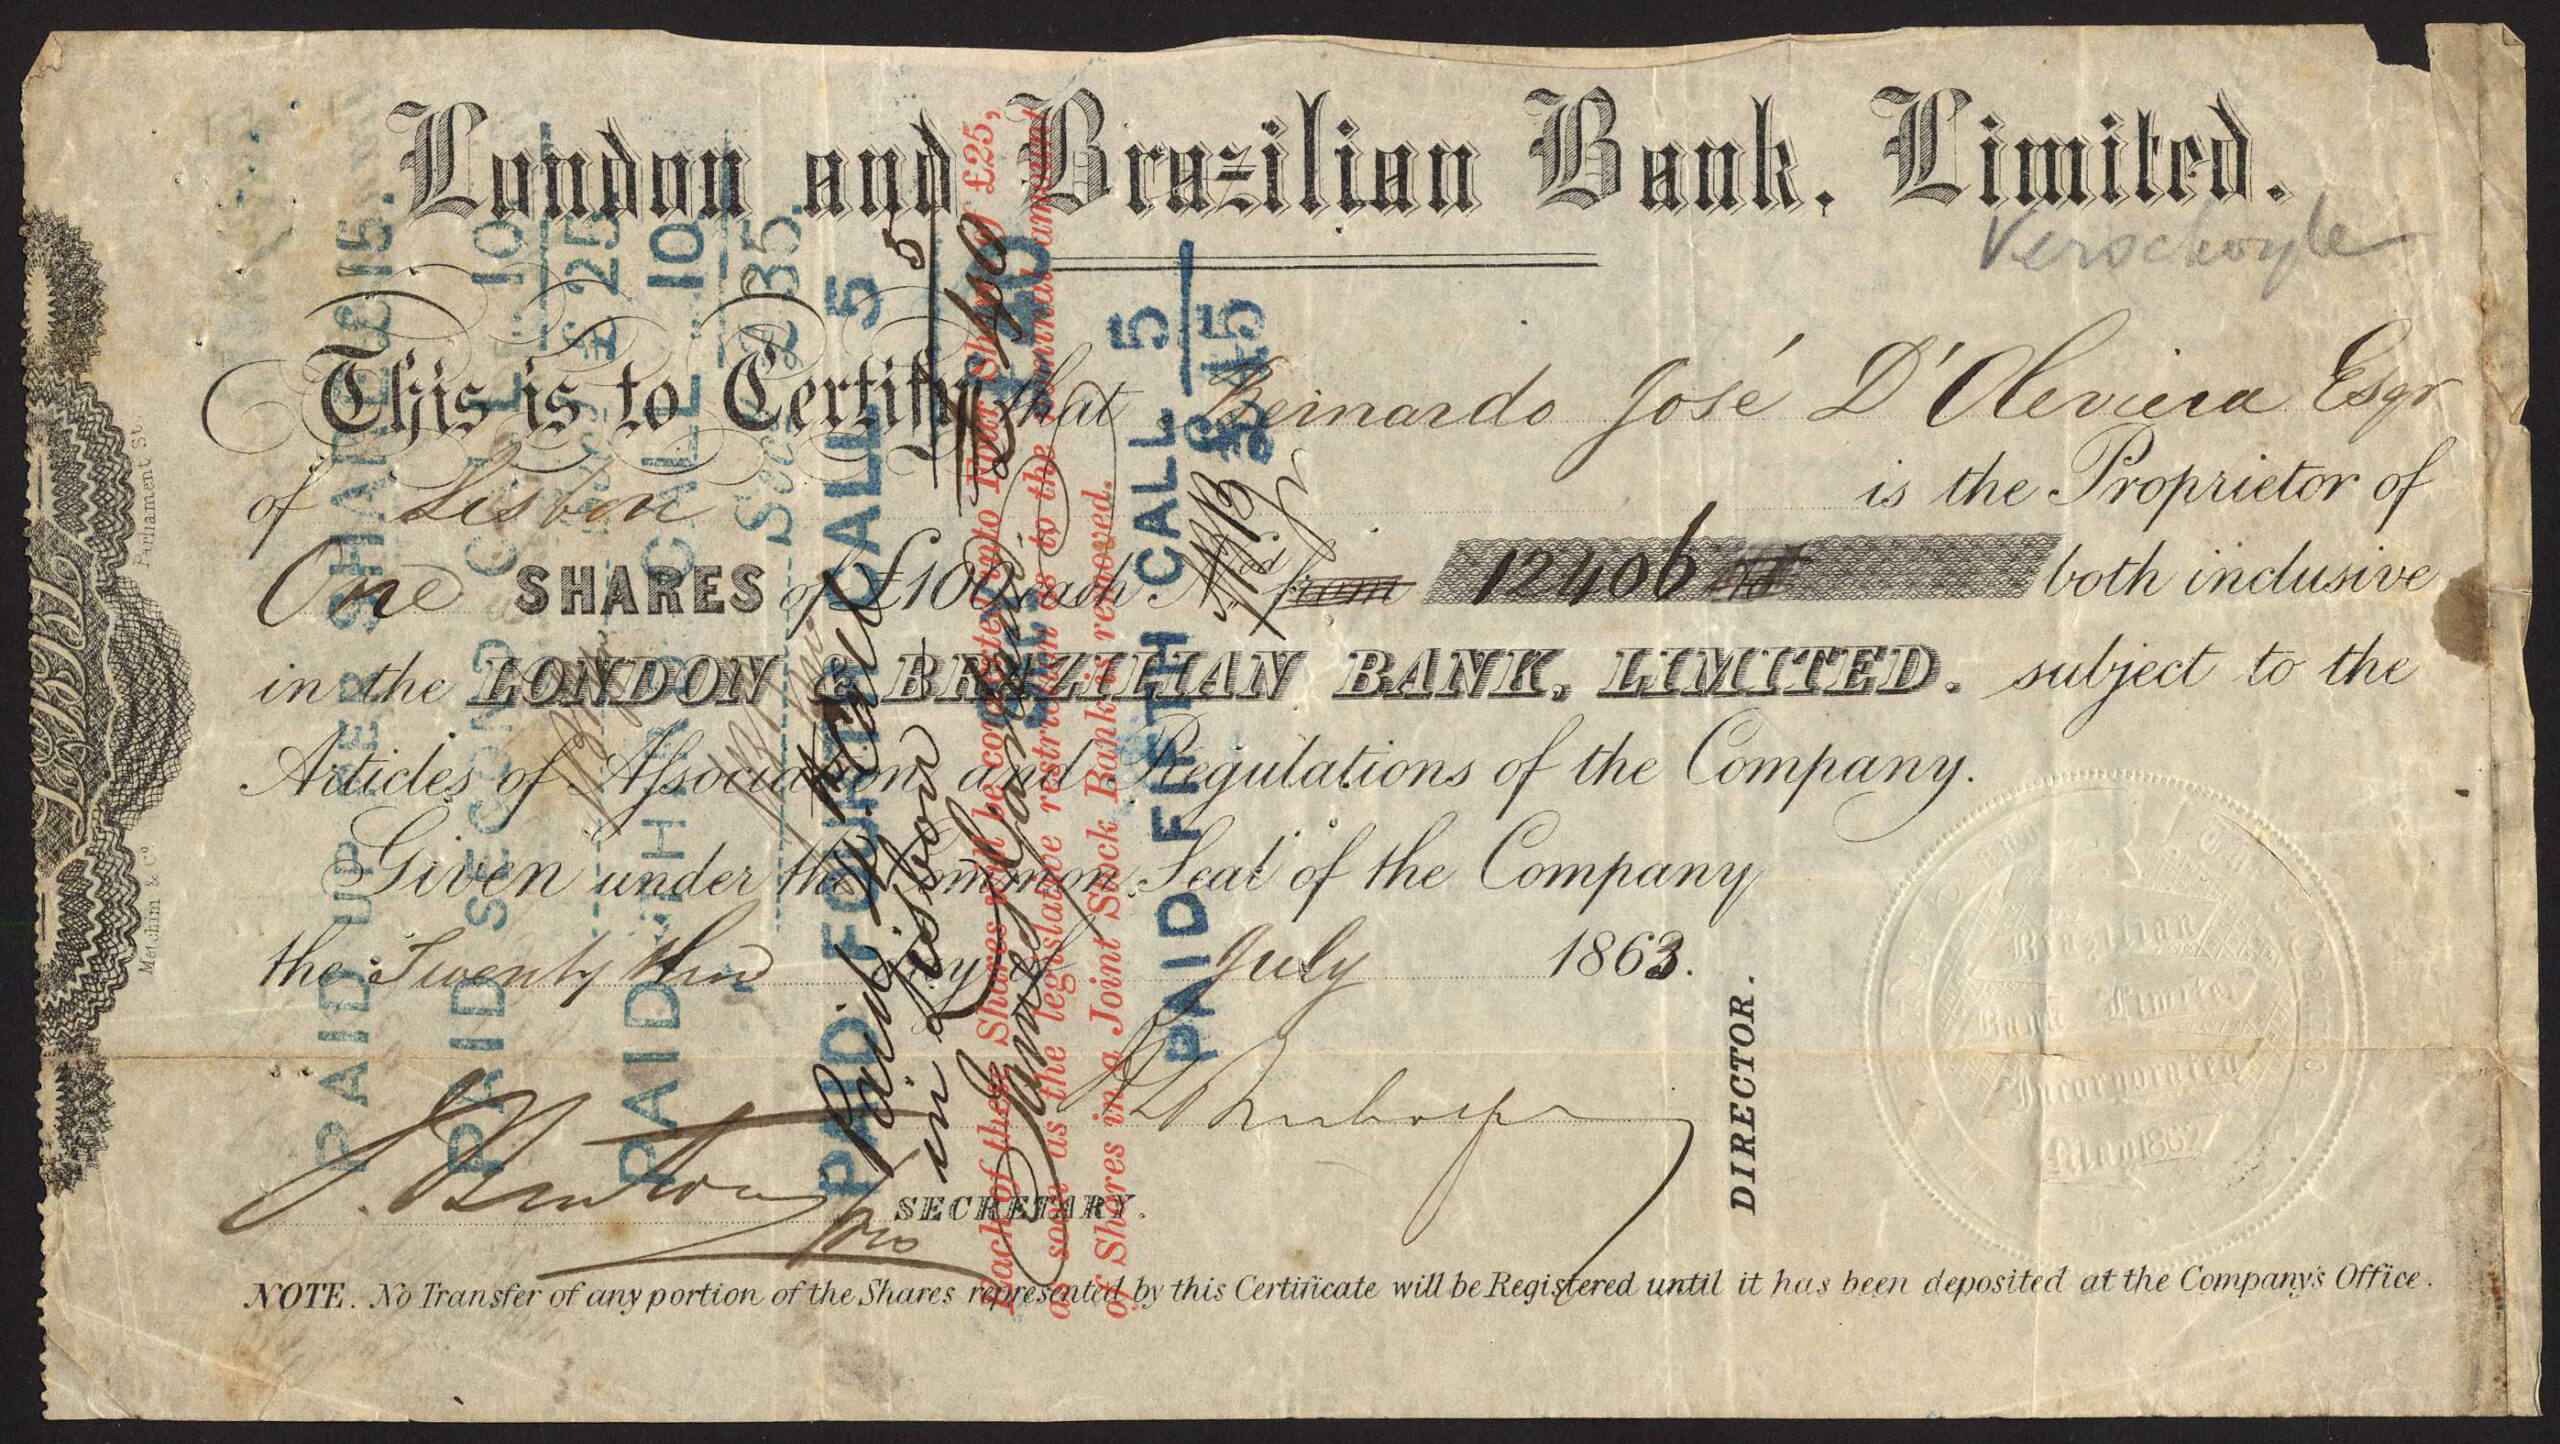 London and Brazilian Bank, Limited.
Verschoyle
This is to Certify that Bernardo José D'Oleviera Esqr
of Lisbon is the Proprietor of
One SHARES of £100 each No from 12406 both inclusive
in the LONDON & BRAZILIAN BANK, LIMITED. subject to the
Articles of Association and Regulations of the Company.
Given under the Common Seal of the Company
the Twenty third day of July 1863.
DIRECTOR.
SECRETARY.
NOTE. No Transfer of any portion of the Shares represented by this Certificate will be Registered until it has been deposited at the Company's Office.
PAID UP PER SHARE £15.
PAID SECOND CALL 10
£25
PAID THIRD CALL 10
£35.
PAID FOURTH CALL 5
£40
Paid 4th Call 5
in Lisbon £40
Each of these Shares will be converted into Four Shares of £25,
as soon as the legislative restriction as to the nominal amount
of Shares in a Joint Stock Bank is removed.
PAID FIFTH CALL 5
£45
Brazilian
Bank Limited
Incorporated
May 1862
Metchim & Co
Parliament St